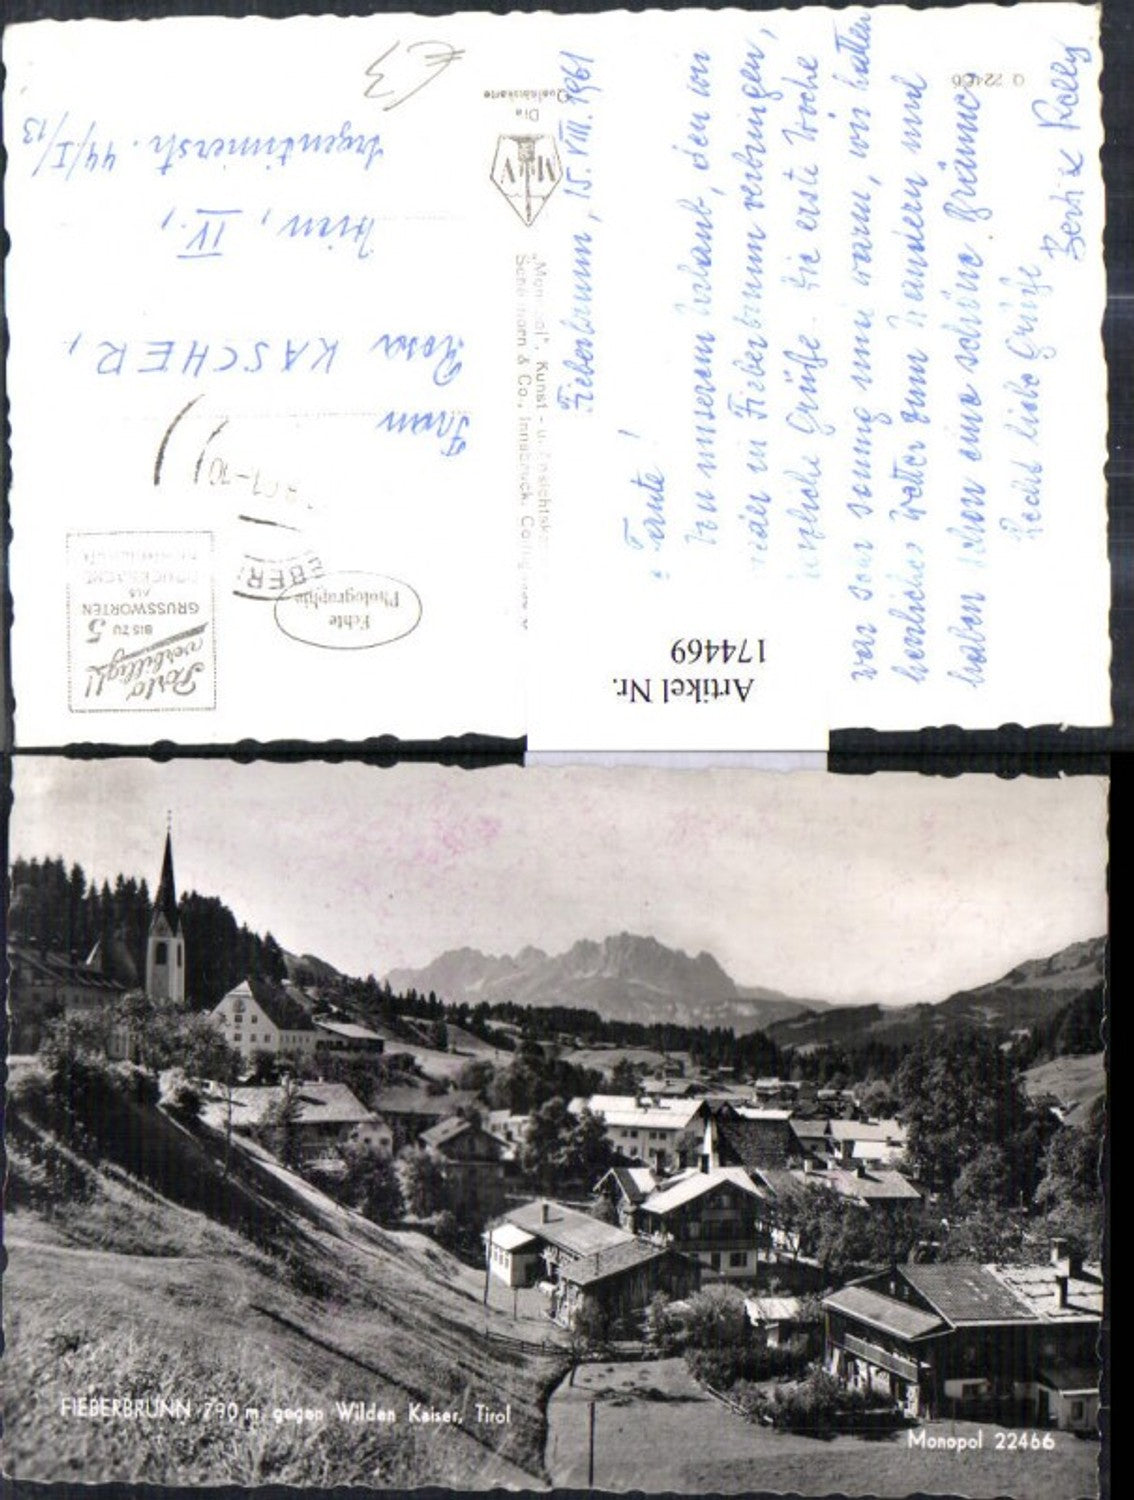 Fieberbrunn, 15. VIII. 1961
Tante!
Von unserem Urlaub, den wir
wieder in Fieberbrunn verbringen,
herzliche Grüße. Die erste Woche
war sehr sonnig und warm, wir hatten
herrliches Wetter zum Wandern und
haben schon eine schöne Bräune.
Recht liebe Grüße
Frau
Rosa KASCHER,
Wien, IV.,
Argentinierstr. 44/I/13
€ 3
Porto
verbilligt!
BIS ZU 5
GRUSSWORTEN
ALS
DRUCKSACHE
Echte
Photographie
Die
Qualitätskarte
M V
Q 22466
Artikel Nr.
174469
FIEBERBRUNN 790 m gegen Wilden Kaiser, Tirol
Monopol 22466